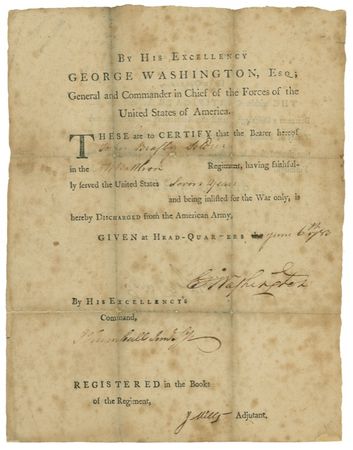 By His Excellency
GEORGE WASHINGTON, Esq;
General and Commander in Chief of the Forces of the
United States of America.
THESE are to CERTIFY that the Bearer hereof
John
in the Regiment, having faithful-
ly served the United States Seven Years
and being inlisted for the War only, is
hereby Discharged from the American Army.
GIVEN at HEAD-QUARTERS the June 6th 1783
GWashington
By His Excellency's
Command,
J Trumbull Junr Sy
REGISTERED in the Books
of the Regiment,
Adjutant.